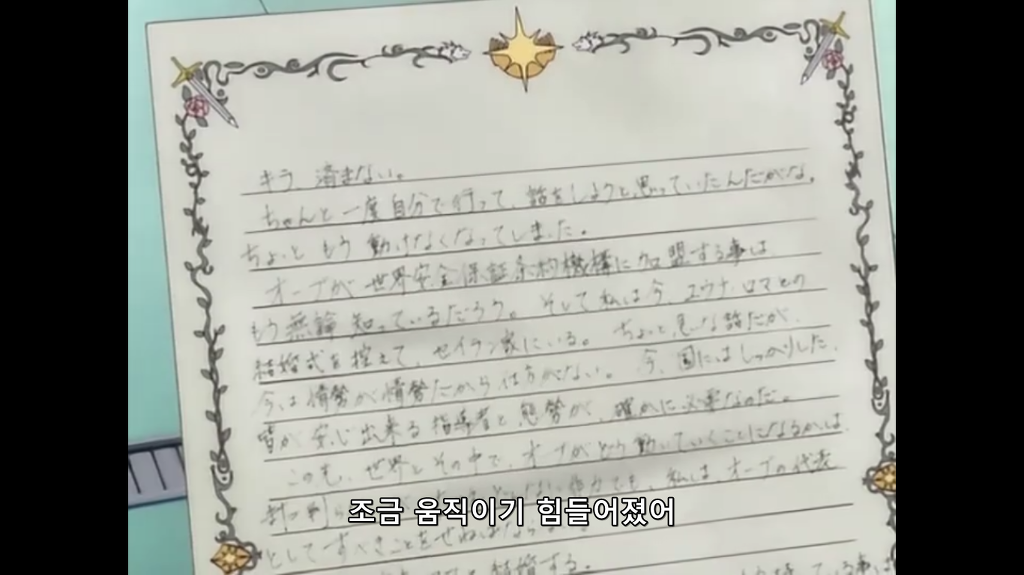 キラ、済まない。
ちゃんと一度自分で行って、話をしようと思っていたんだがな。
ちょっともう動けなくなってしまった。
オーブが世界安全保証条約機構に加盟する事は、
もう無論知っているだろう。そして私は今、ユウナ・ロマとの
結婚式を控えて、セイラン家にいる。ちょっと急な話だが、
今は情勢が情勢だから仕方がない。今、国にはしっかりした、
皆が安心出来る指導者と態勢が、確かに必要なのだ。
この先、世界とその中で、オーブがどう動いていくことになるかは、
まだ判ら
ても、私は、オーブの代表
としてすべきことをせねばならない。
結婚する。
いる事は
조금 움직이기 힘들어졌어